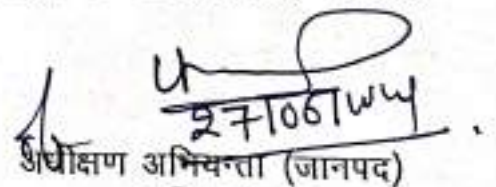 27/06/
अधीक्षण अभियन्ता (जानपद)